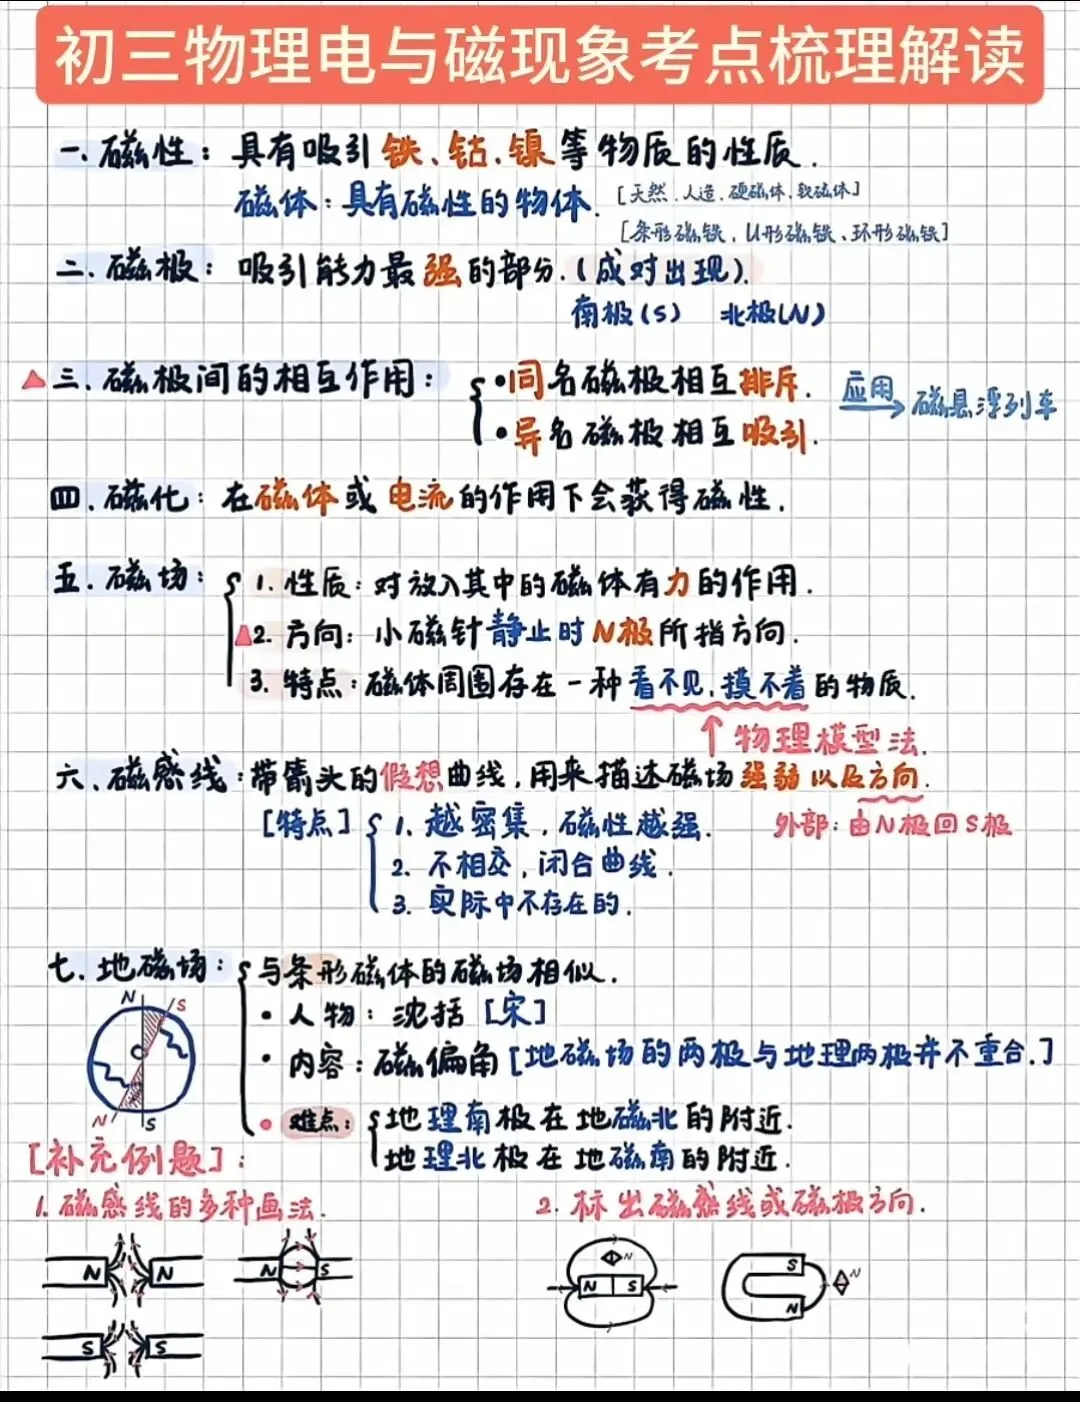 初三物理电与磁现象考点梳理解读
一.磁性：具有吸引铁、钴、镍等物质的性质.
磁体：具有磁性的物体. [天然.人造.硬磁体.软磁体]
[条形磁铁,U形磁铁、环形磁铁]
二.磁极：吸引能力最强的部分.(成对出现).
南极(S) 北极(N)
三.磁极间的相互作用：
•同名磁极相互排斥. 应用 磁悬浮列车
•异名磁极相互吸引.
四.磁化：在磁体或电流的作用下会获得磁性.
五.磁场：
1.性质：对放入其中的磁体有力的作用.
2.方向：小磁针静止时N极所指方向.
3.特点：磁体周围存在一种看不见,摸不着的物质.
↑物理模型法.
六、磁感线：带箭头的假想曲线,用来描述磁场强弱以及方向.
[特点] 1.越密集,磁性越强. 外部：由N极回S极
2.不相交,闭合曲线.
3.实际中不存在的.
七.地磁场：与条形磁体的磁场相似.
•人物：沈括[宋]
•内容：磁偏角[地磁场的两极与地理两极并不重合.]
•难点：地理南极在地磁北的附近.
地理北极在地磁南的附近.
N S
N S
[补充例题]：
1.磁感线的多种画法.
2.标出磁感线或磁极方向.
N N
N S
S S
N
N S
S N
N